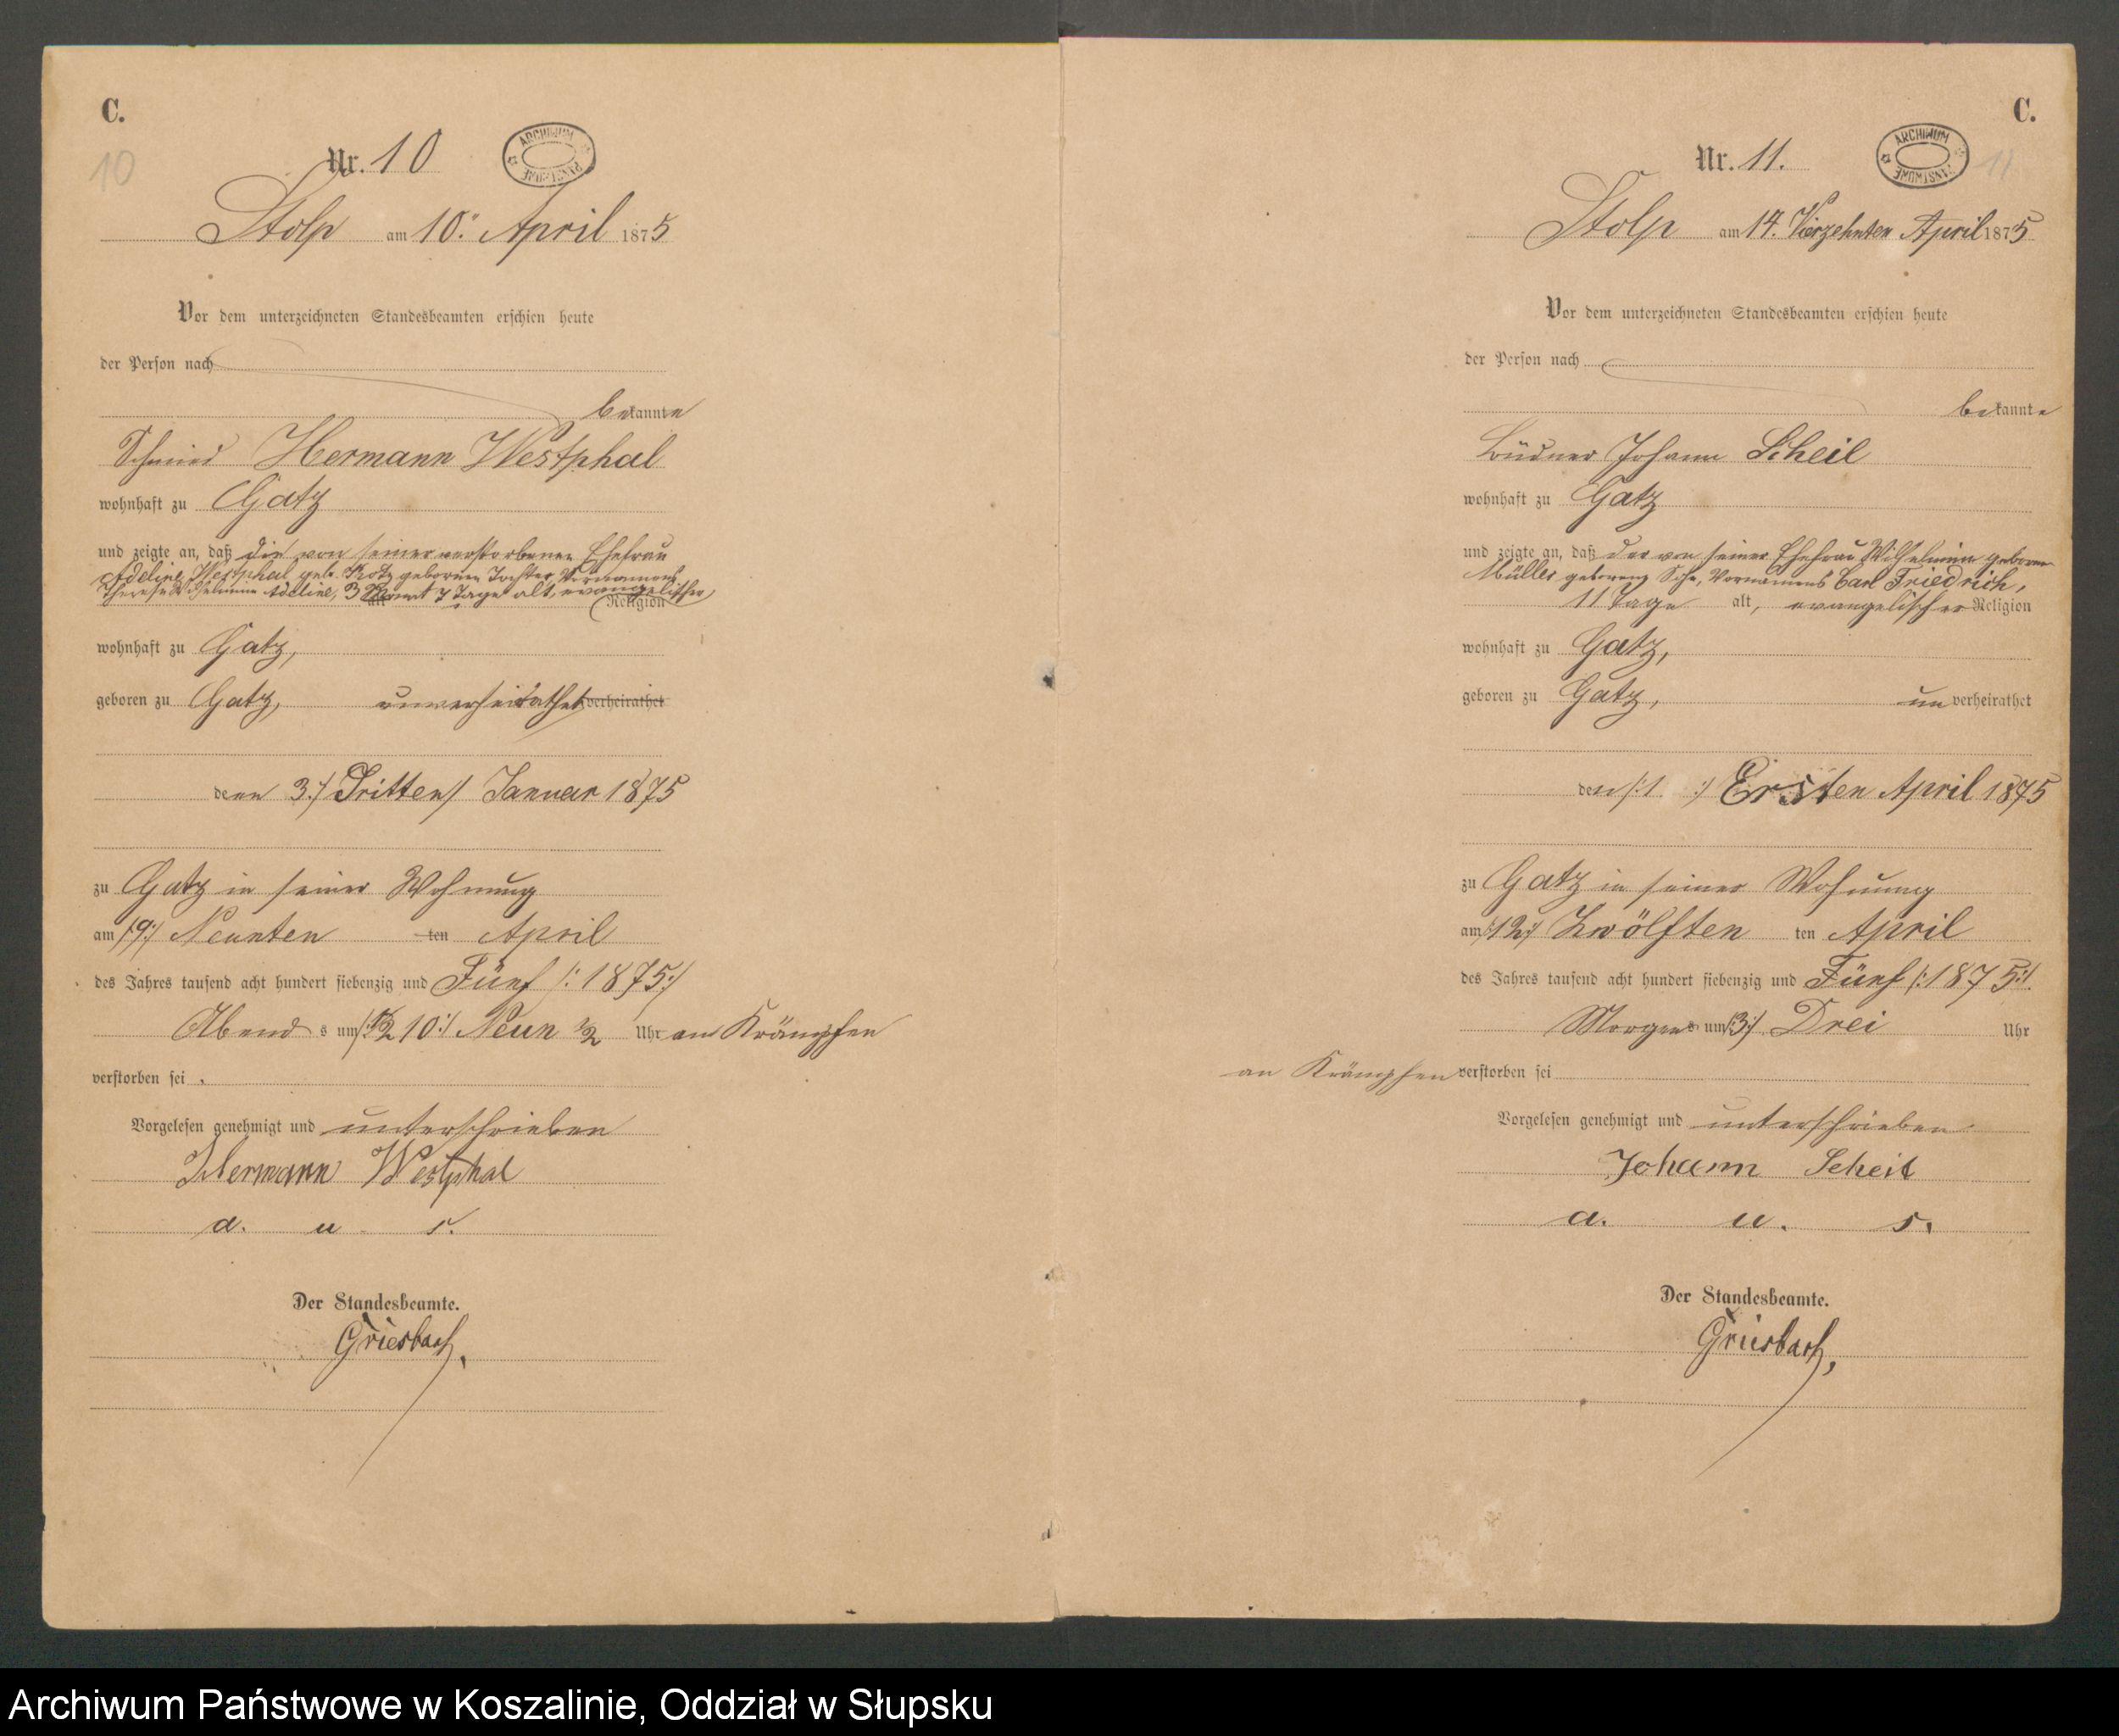 C.
10
Nr. 10
ARCHIWUM PAŃSTWOWE
Stolp am 10. April 1875
Vor dem unterzeichneten Standesbeamten erschien heute
der Person nach
bekannte
Schmied Hermann Westphal
wohnhaft zu Gatz
und zeigte an, daß die von seiner verstorbenen Ehefrau
Adeline Westphal geb. geborenen Tochter, Vornamens
Therese Wilhelmine Adeline, 3 Monat 7 Tage alt, evangelischer
alt Religion
wohnhaft zu Gatz,
geboren zu Gatz, unverheirathet verheirathet
denen 3:/ Dritten/ Januar 1875
zu Gatz in seiner Wohnung
am /9:/ Neunten ten April
des Jahres tausend acht hundert siebenzig und Fünf /: 1875:/
Abend s um /:½10:/ Neun ½ Uhr an Krämpfen
verstorben sei.
Vorgelesen genehmigt und unterschrieben
Hermann Westphal
a. u. s.
Der Standesbeamte.
Griesbach,
C.
11
Nr. 11.
ARCHIWUM PAŃSTWOWE
Stolp am 14. Vierzehnten April 1875
Vor dem unterzeichneten Standesbeamten erschien heute
der Person nach
bekannte
Büdner Johann Scheil
wohnhaft zu Gatz
und zeigte an, daß der von seiner Ehefrau Wilhelmine geborene
Müller geborene Sohn, Vornamens Carl Friedrich,
11 Tage alt, evangelischer Religion
wohnhaft zu Gatz,
geboren zu Gatz, unverheirathet
den /:1. :/ Ersten April 1875
zu Gatz in seiner Wohnung
am /:12:/ Zwölften ten April
des Jahres tausend acht hundert siebenzig und Fünf /:1875:/.
Morgens um /:3:/ Drei Uhr
an Krämpfen verstorben sei
Vorgelesen genehmigt und unterschrieben
Johann Scheil
a. u. s.
Der Standesbeamte.
Griesbach,
Archiwum Państwowe w Koszalinie, Oddział w Słupsku